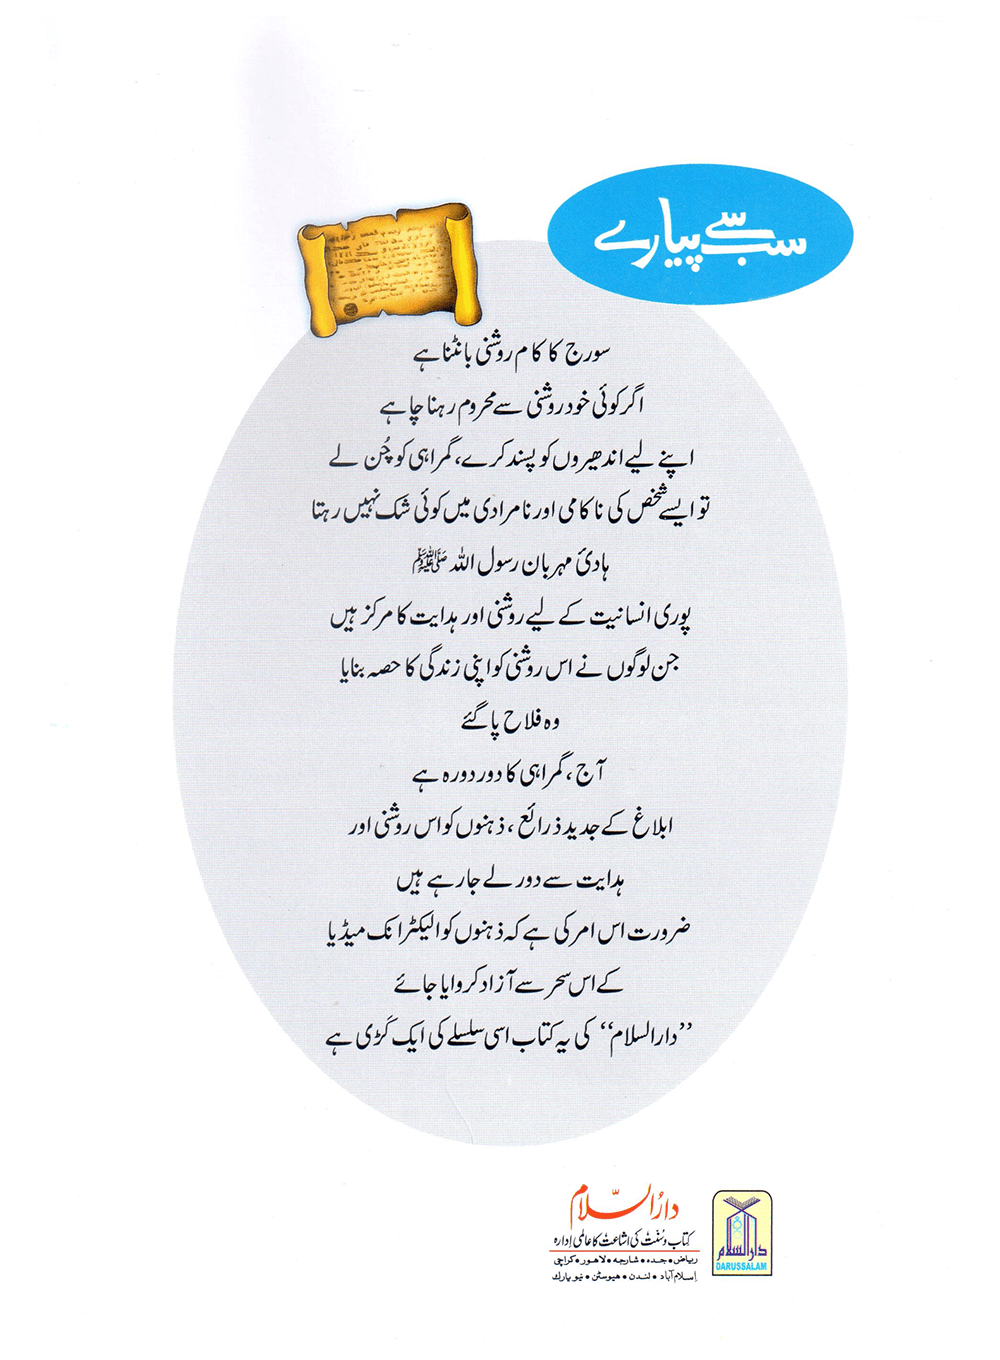 سب سے پیارے
سورج کا کام روشنی بانٹنا ہے
اگر کوئی خود روشنی سے محروم رہنا چاہے
اپنے لیے اندھیروں کو پسند کرے، گمراہی کو چُن لے
تو ایسے شخص کی ناکامی اور نامرادی میں کوئی شک نہیں رہتا
ہادیٔ مہربان رسول اللہ ﷺ
پوری انسانیت کے لیے روشنی اور ہدایت کا مرکز ہیں
جن لوگوں نے اس روشنی کو اپنی زندگی کا حصہ بنایا
وہ فلاح پا گئے
آج، گمراہی کا دور دورہ ہے
ابلاغ کے جدید ذرائع، ذہنوں کو اس روشنی اور
ہدایت سے دور لے جا رہے ہیں
ضرورت اس امر کی ہے کہ ذہنوں کو الیکٹرانک میڈیا
کے اس سحر سے آزاد کروایا جائے
”دارالسلام“ کی یہ کتاب اسی سلسلے کی ایک کَڑی ہے
دارُالسّلام
کتاب و سُنّت کی اشاعت کا عالمی اِدارہ
ریاض • جدہ • شارجہ • لاھور • کراچی
اِسلام آباد • لندن • ھیوسٹن • نیو یارک
دارالسلام
DARUSSALAM